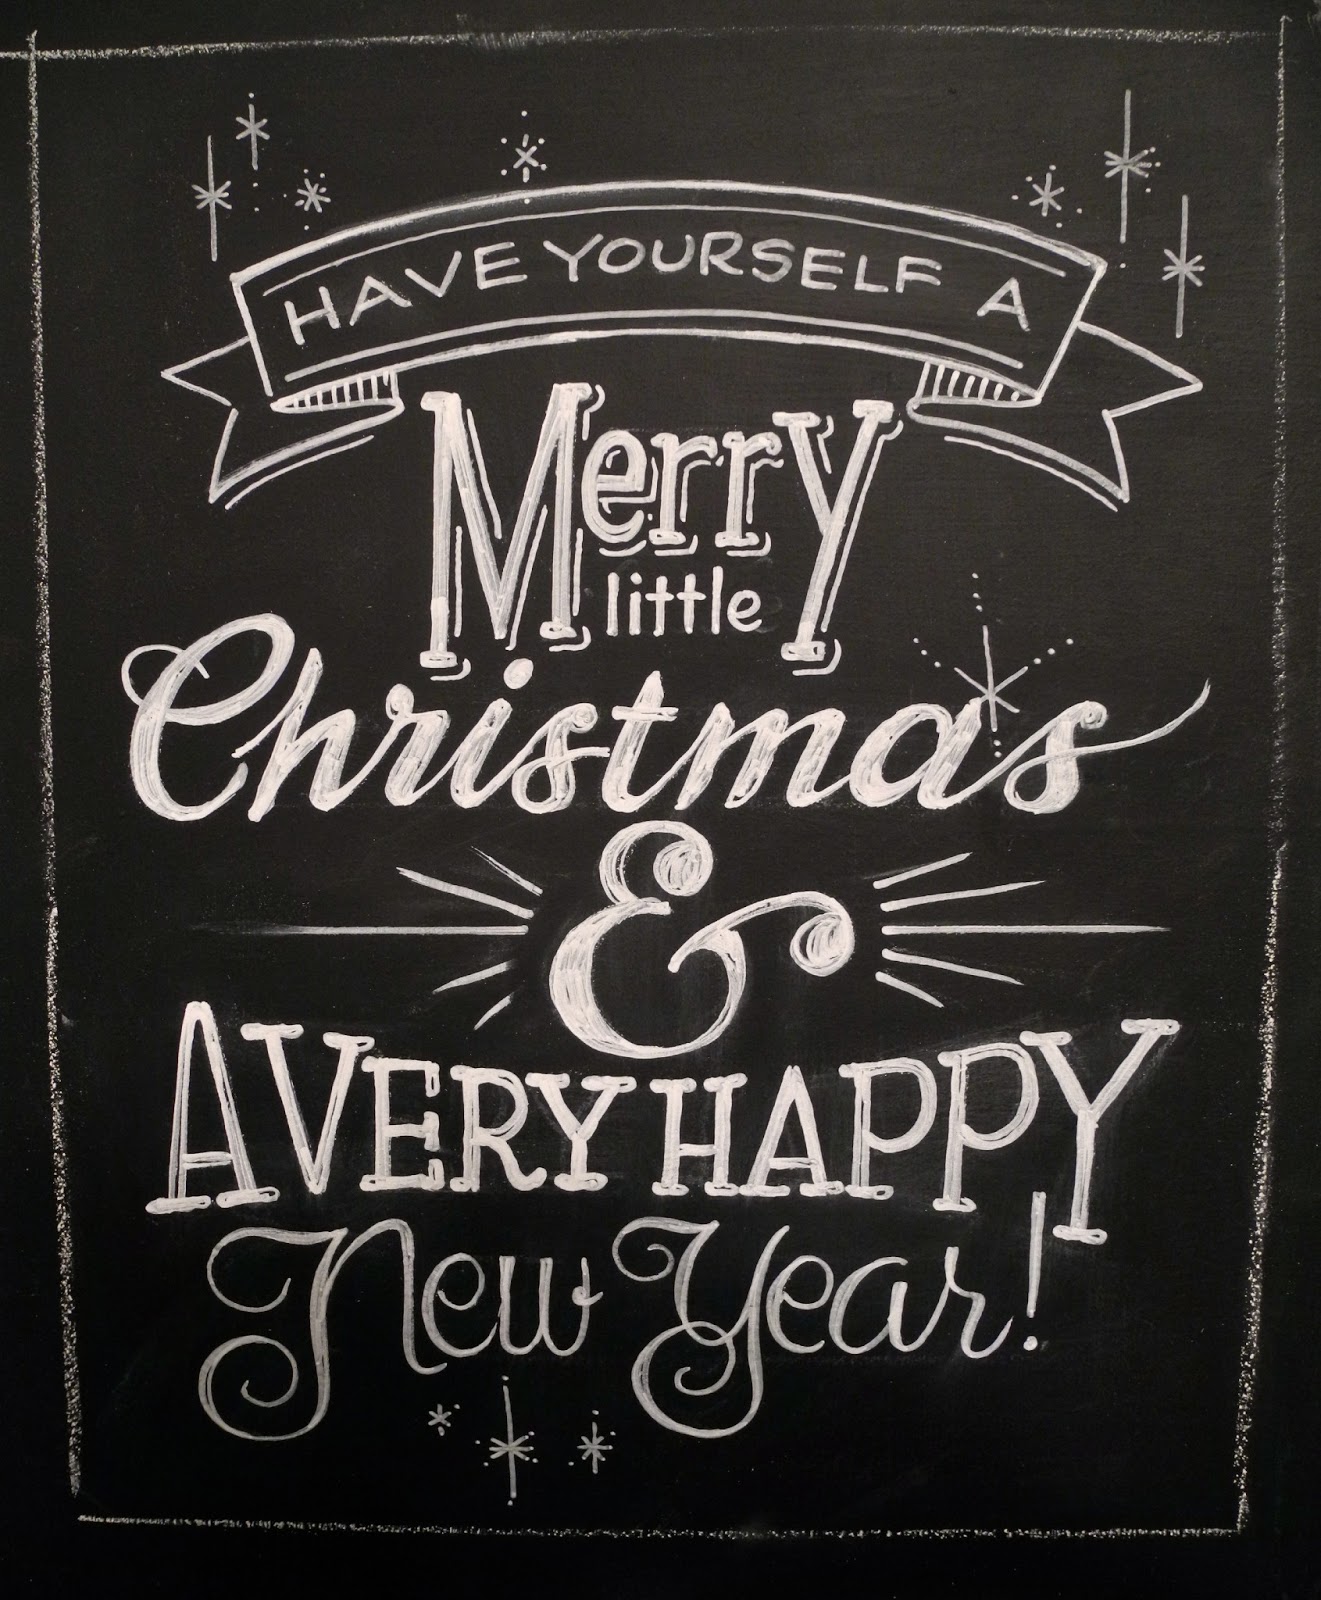 HAVE YOURSELF A
Merry
little
Christmas
&
A VERY HAPPY
New Year!